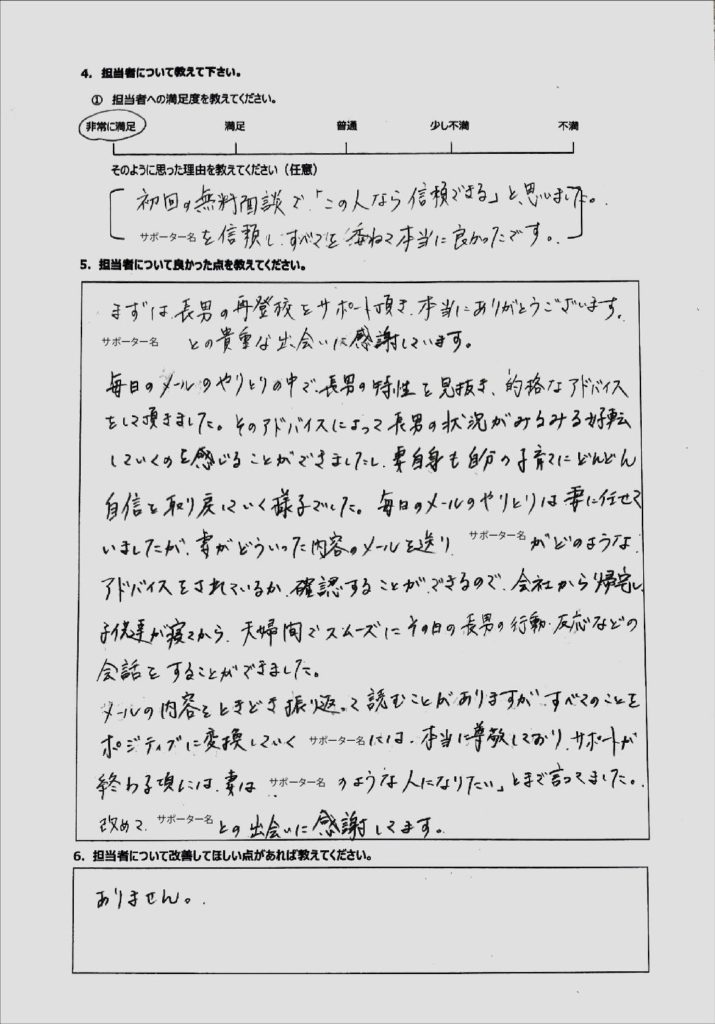 4. 担当者について教えて下さい。
① 担当者への満足度を教えてください。
非常に満足 満足 普通 少し不満 不満
そのように思った理由を教えてください（任意）
初回の無料面談で、「この人なら信頼できる」と、思いました。
サポーター名を信頼し、すべてを委ねて本当に良かったです。
5. 担当者について良かった点を教えてください。
まずは、長男の再登校をサポート頂き、本当にありがとうございます。
サポーター名 との貴重な出会いに感謝しています。
毎日のメールのやりとりの中で、長男の特性を見抜き、的格なアドバイス
をして頂きました。そのアドバイスによって長男の状況がみるみる好転
していくのを感じることができましたし、妻自身も自分の子育てにどんどん
自信を取り戻していく様子でした。毎日のメールのやりとりは妻に任せて
いましたが、妻がどういった内容のメールを送り サポーター名 がどのような
アドバイスをされているか、確認することができるので、会社から帰宅し、
子供達が寝てから、夫婦間でスムーズにその日の長男の行動・反応などの
会話をすることができました。
メールの内容をときどき振り返って読むことがありますが、すべてのことを
ポジティブに変換していく サポーター名 には、本当に尊敬しており、サポートが
終わる頃には、妻は サポーター名 のような人になりたい」とまで言ってました。
改めて、サポーター名 との出会いに感謝してます。
6. 担当者について改善してほしい点があれば教えてください。
ありません。